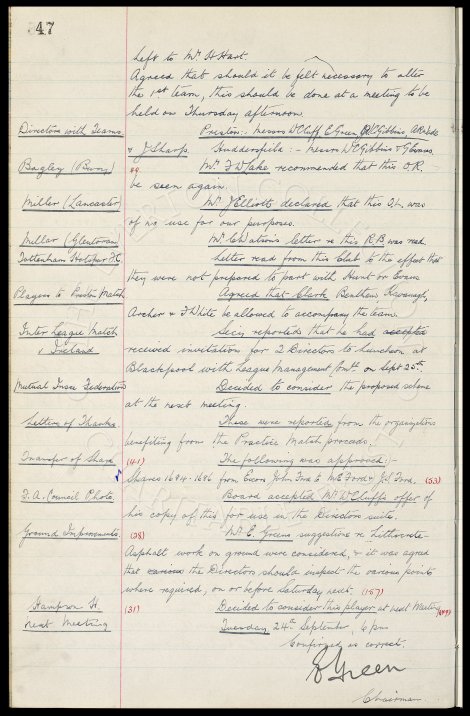 47
left to Mr. H Hart.
Agreed that should it be felt necessary to alter
the 1st team, this should be done at a meeting to be
held on Thursday afternoon.
Directors with Teams. Preston:- Messrs W Cuff, E Green, W C Gibbins,
& J Sharp. Huddersfield:- Messrs W C Gibbins & G Evans.
Bagley (Bury) 29. Mr. recommended that this O.R.
be seen again.
Miller (Lancaster) Mr. J Elliott declared that this was
of no use for our purposes.
Millar (Glentoran) Mr. C Watson's letter re this R.B. was read.
Tottenham Hotspur F.C. Letter read from this Club to the effect that
they were not prepared to part with Hunt or Evans
Players to Preston Match Agreed that Clark Bentham Kavanagh,
Archer & J White be allowed to accompany the team.
Inter League Match Secy. reported that he had accepted
v Ireland received invitations for 2 Directors to Luncheon at
Blackpool with League Management on Sept 25th.
Mutual Insce Federation Decided to consider the proposed scheme
at the next meeting.
Letters of Thanks These were reported from the organizations
benefiting from the Practice Match proceeds.
Transfer of Share (41) The following was approved:-
Shares 1694-1696 from Exors John Ford to Ford & Ford. (53)
F.A. Council Photo. Board accepted Mr. W Cuff's offer of
his copy of this for use in the Directors suite.
Ground Improvements. (28) Mr. E. Green's suggestions re
Asphalt work on ground were considered, & it was agreed
that the Directors should inspect the various points
where required, on or before Saturday next. (157)
Hampson H. (31) Decided to consider this player at next Meeting
next Meeting Tuesday 24th September, 6 pm
Confirmed as correct.
E Green
Chairman.